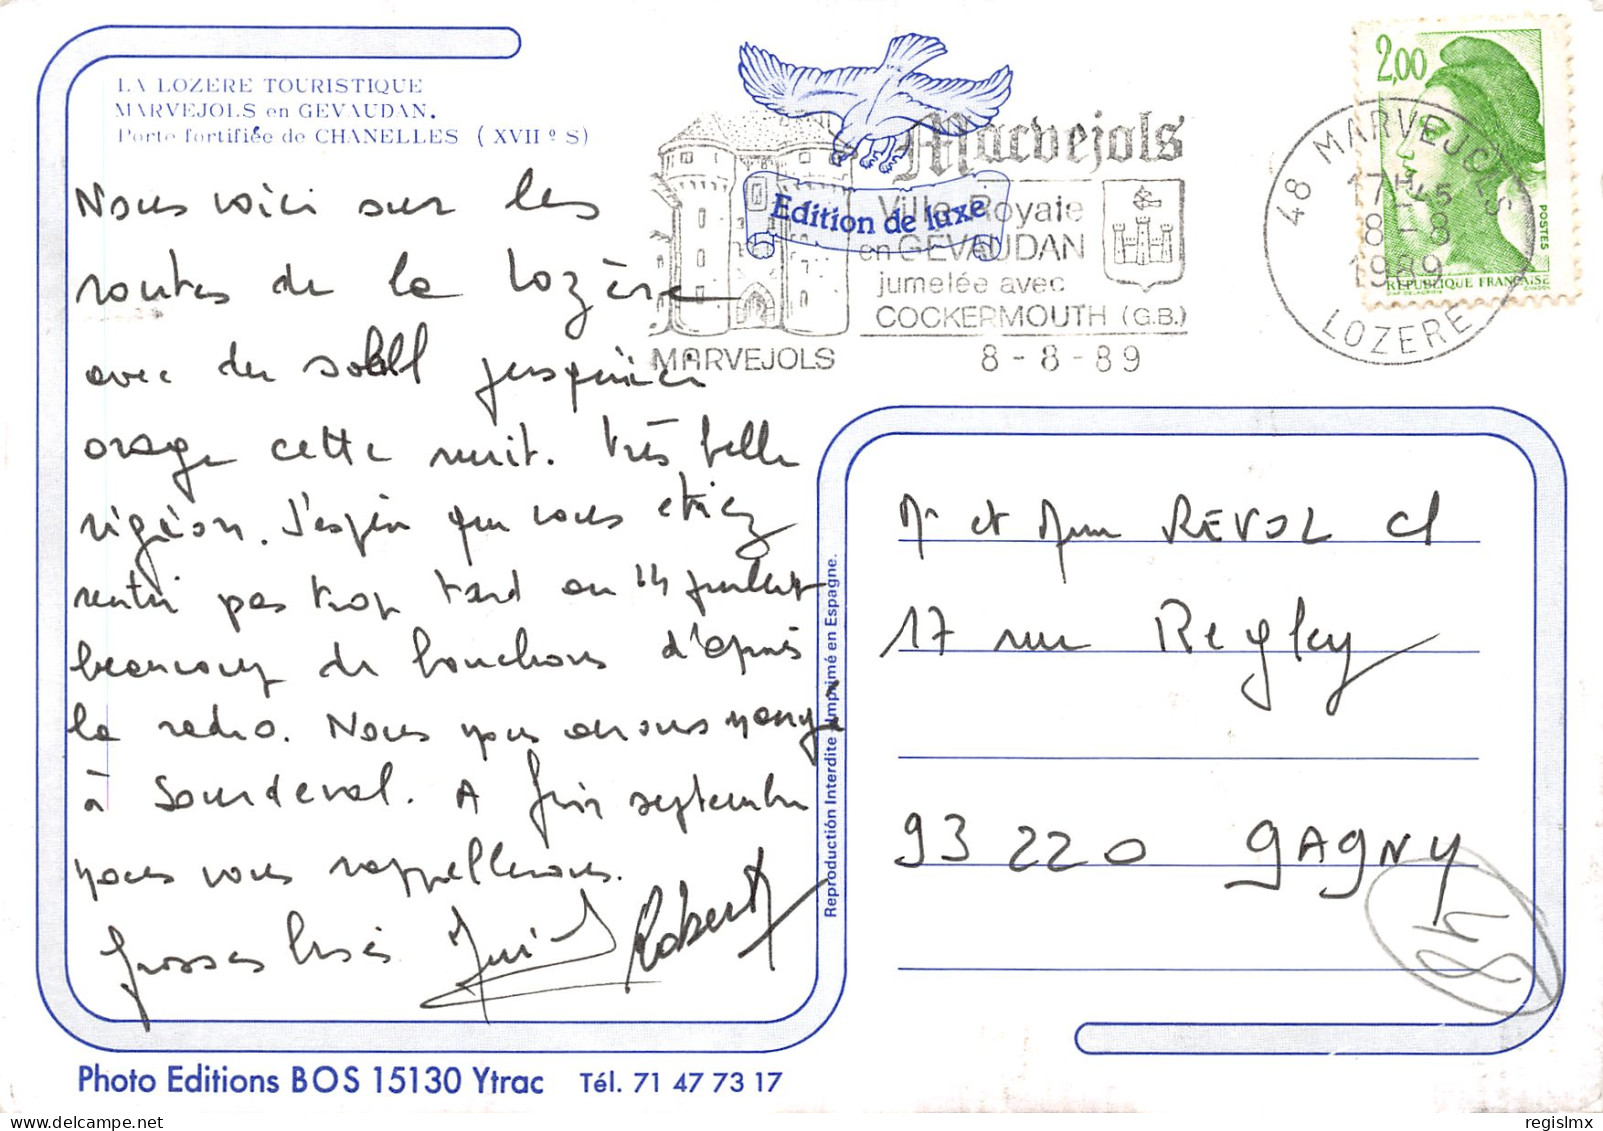 LA LOZERE TOURISTIQUE
MARVEJOLS en GEVAUDAN.
Porte fortifiée de CHANELLES (XVII º S)
Nous voici sur les
routes de la Lozère
avec du soleil jusqu'ici
orage cette nuit. très belle
région. J'espère que vous étiez
rentré pas trop tard au 14 juillet
beaucoup de bouchons d'après
la radio. Nous nous avons mangé
à Sourdeval. A fin septembre
nous vous rappellerons.
Grosses bises Robert
Edition de luxe
Marvejols
Ville Royale
en GEVAUDAN
jumelée avec
COCKERMOUTH (G.B.)
MARVEJOLS 8-8-89
48 MARVEJOLS
17H45
8-8
1989
LOZERE
2,00
POSTES
REPUBLIQUE FRANÇAISE
Mr et Mme REVOL Cl
17 rue Regley
93 220 GAGNY
Reproduction Interdite Imprimé en Espagne.
Photo Editions BOS 15130 Ytrac Tél. 71 47 73 17
regislmx